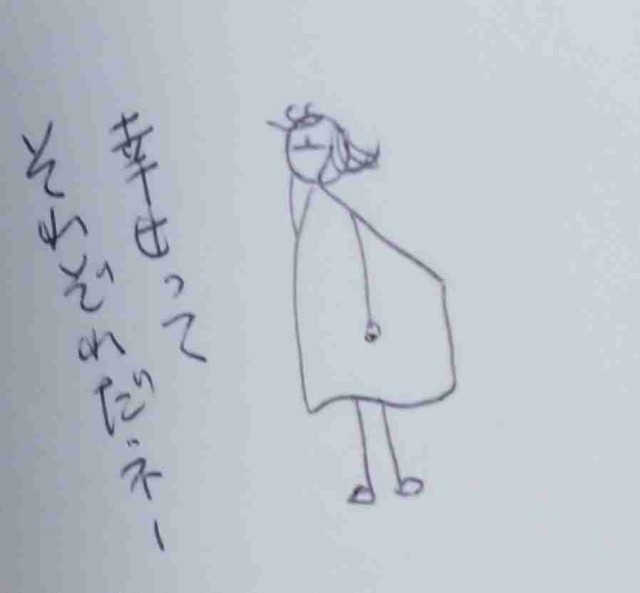 幸せって
それぞれだネー